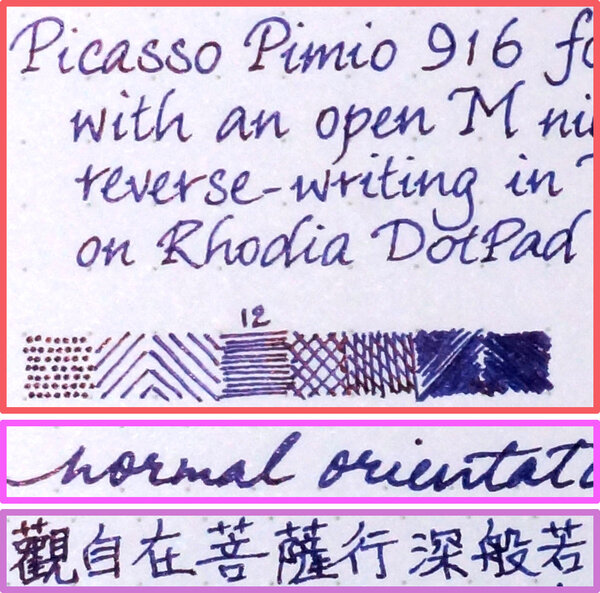 Picasso Pimio 916 fo
with an open M ni
reverse-writing in
on Rhodia DotPad
12
normal orientat
觀自在菩薩行深般若